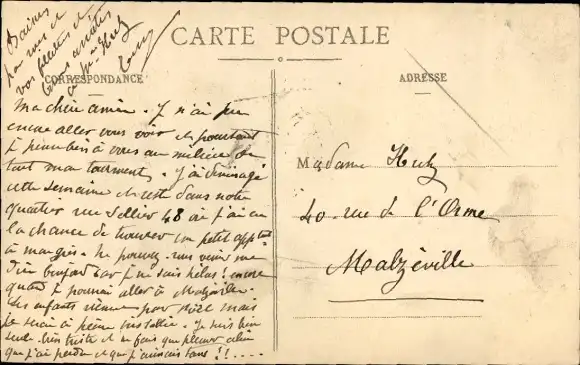 Baisers
pour vous et
vos fillettes et
bonnes amitiés
à Mr Hutz
CARTE POSTALE
CORRESPONDANCE
Ma chère amie. Je n'ai pu
encore aller vous voir et pourtant
je pense bien à vous au milieu de
tout mon tourment. J'ai déménagé
cette semaine et reste dans notre
quartier rue Sellier 48 où j'ai eu
la chance de trouver un petit appt
à mon gré. Ne pouvez-vous venir me
dire bonjour car je ne sais hélas! encore
quand je pourrai aller à Malzéville.
Les enfants viennent pour Noël mais
je serai à peine installée. Je suis bien
seule, bien triste et ne fais que pleurer celui
que j'ai perdu et que j'aimais tant!!....
ADRESSE
Madame Hutz
40 rue de l'Orme
Malzéville